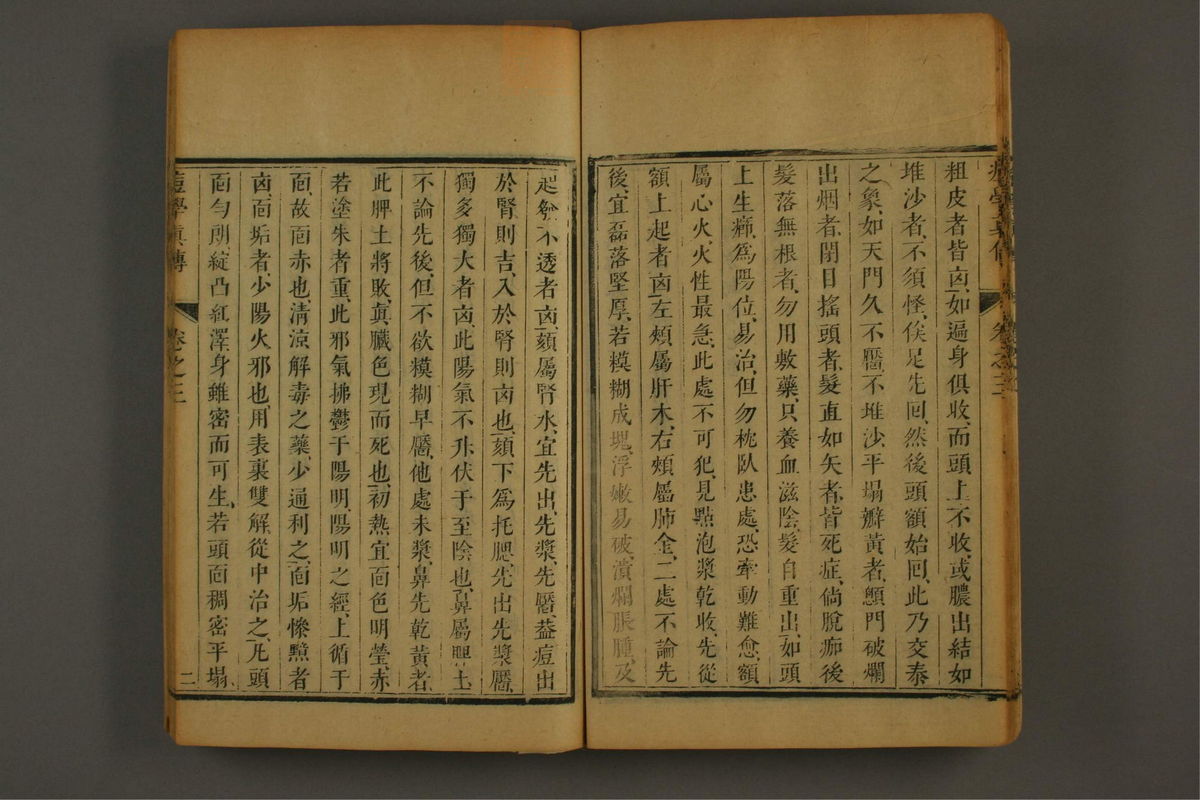 痘學真傳 卷之三
粗皮者皆凶、如遍身俱收、而頭上不收、或膿出結如
堆沙者、不須怪、俟足先回、然後頭額始回、此乃交泰
之象、如天門久不靨、不堆沙、平塌癬黃者、顖門破爛
出烟者、閉目搖頭者、髮直如矢者、皆死症、倘脫痂後
髮落無根者、勿用敷藥、只養血滋陰、髮自重出、如頭
上生癤、為陽位、易治、但勿枕臥患處、恐牽動難愈、額
屬心火、火性最急、此處不可犯、見點泡漿乾收、先從
額上起者凶、左頰屬肝木、右頰屬肺金、二處不論先
後、宜磊落堅厚、若糢糊成塊、浮嫩易破、潰爛脹腫、及
起發不透者凶、頦屬腎水、宜先出、先漿、先靨、葢痘出
於腎則吉、入於腎則凶也、頦下為托腮、先出先漿靨、
獨多獨大者凶、此陽氣不升、伏于至陰也、鼻屬脾土
不論先後、但不欲糢糊早靨、他處未漿、鼻先乾黃者、
此脾土將敗、眞臟色現而死也、初熱宜面色明瑩、赤
若塗朱者重、此邪氣拂鬱于陽明、陽明之經、上循于
面、故面赤也、清涼解毒之藥、少通利之、面垢慘黯者
凶、面垢者、少陽火邪也、用表裏雙解、從中治之、凡頭
面勻朗綻凸紅澤、身雖密而可生、若頭面稠密平塌、
痘學眞傳 卷之三 二